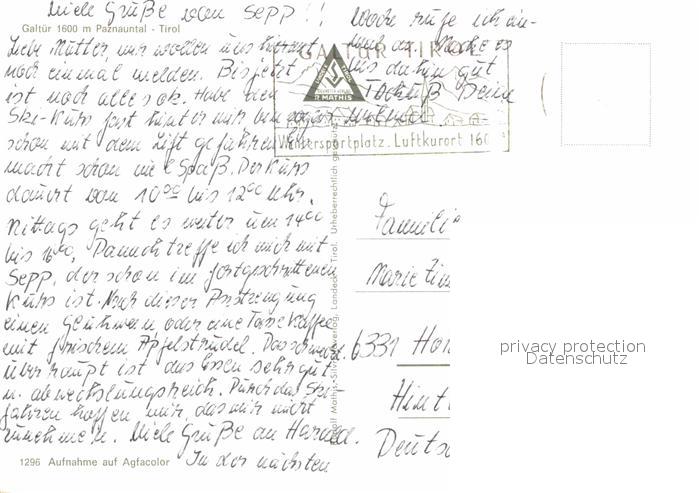 Viele Grüße von Sepp!!
Galtür 1600 m Paznauntal - Tirol
Liebe Mutter, wir wollen uns kurz
noch einmal melden. Bis jetzt
ist noch alles ok. Habe den
Ski-Kurs fast hinter mir bin sogar
schon mit dem Lift gefahren. Es
macht schon viel Spaß. Der Kurs
dauert von 10⁰⁰ bis 12⁰⁰ Uhr.
Mittags geht es weiter um 14⁰⁰
bis 16⁰⁰. Dannach treffe ich mich mit
Sepp, der schon im fortgeschrittenen
Kurs ist. Nach dieser Anstrengung
einen Glühwein oder eine Tasse Kaffee
mit frischem Apfelstrudel. Das schmeckt.
überhaupt ist das Essen sehr gut
u. abwechslungsreich. Durch das Ski-
fahren hoffen wir, das wir nicht
zunehmen. Viele Grüße an Harald.
In der nächsten
1296 Aufnahme auf Agfacolor
Woche rufe ich ein-
mal an. Mache es
bis dahin gut
Tschüß Deine
GALTÜR TIROL
R. MATHIS
Wintersportplatz. Luftkurort 160
Rudolf Mathis-Silvretta-Verlag, Landeck-Tirol. Urheberrechtlich geschützt
Famili
Marie
6331 Ho
Hint
Deutsc
privacy protection
Datenschutz